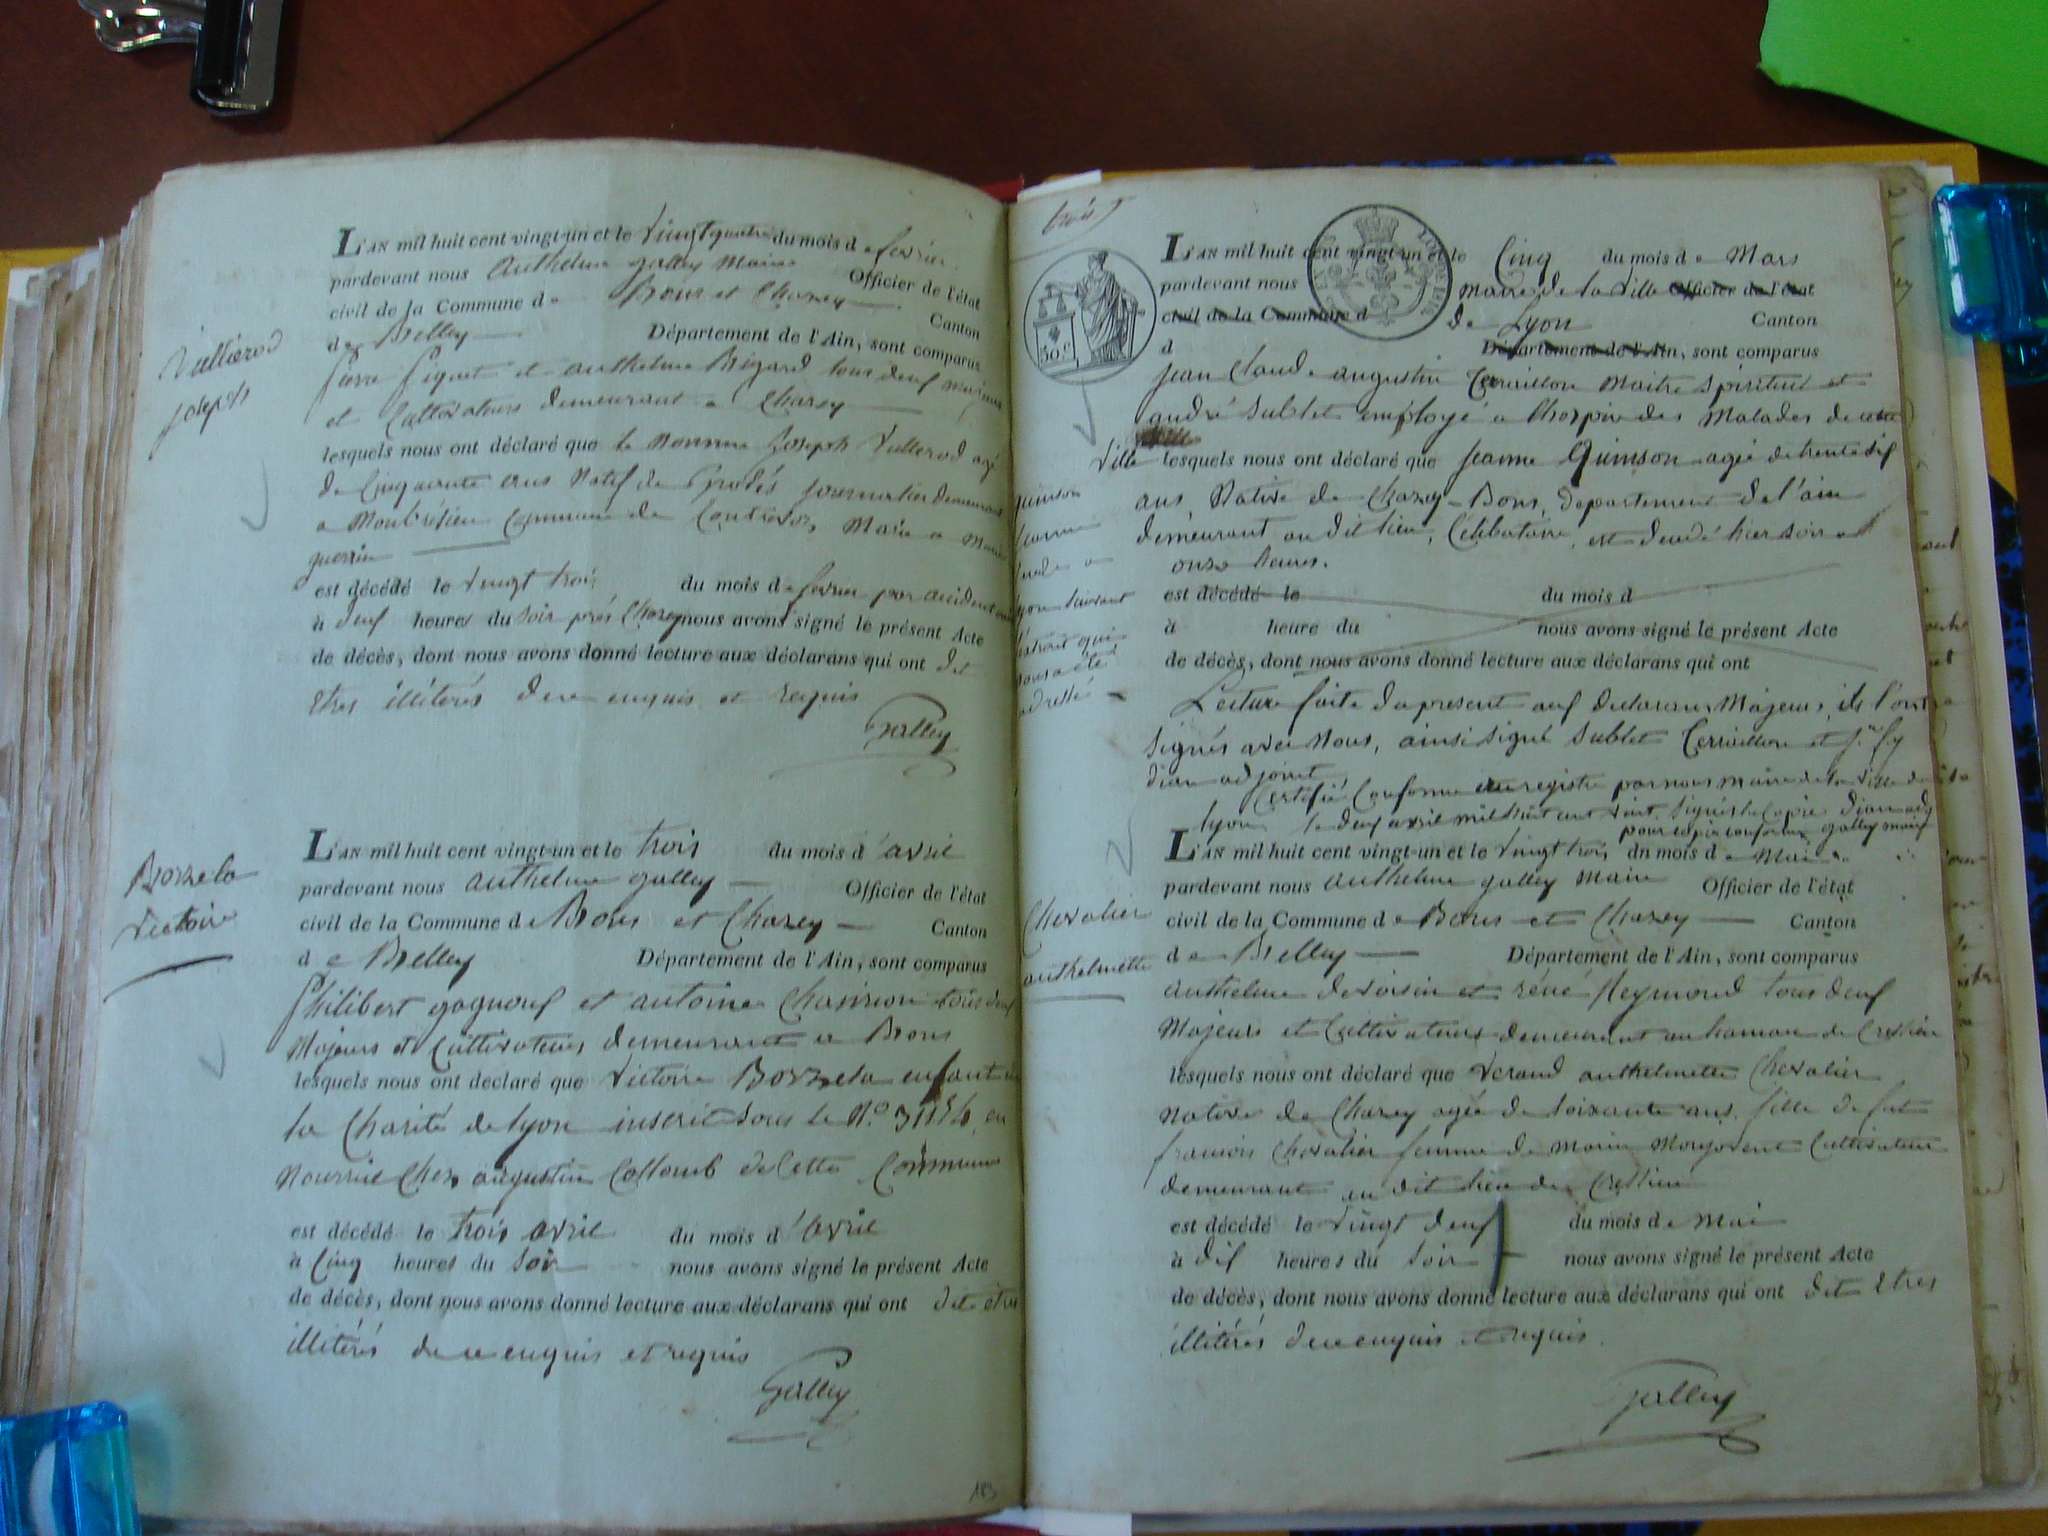 Vullierod
joseph
L'AN mil huit cent vingt-un et le vingt quatre du mois de fevrier
pardevant nous Anthelme galley Maire Officier de l'état
civil de la Commune de Bons et Chazey Canton
de Belley Département de l'Ain, sont comparus
pierre et anthelme tous deux majeurs
et Cultivateurs demeurant a Chazey
lesquels nous ont déclaré que le nommé Joseph Vullerod agé
de Cinquante ans Natif de journalier demeurant
a Commune de Contrevoz, Marié a Marie
guerrin
est décédé le vingt trois du mois de fevrier par accident
à deux heures du soir près Chazey nous avons signé le présent Acte
de décès, dont nous avons donné lecture aux déclarans qui ont dit
etres illitérés de ce enquis et requis
Galley
Bozzela
Victoire
L'AN mil huit cent vingt-un et le trois du mois d'avril
pardevant nous anthelme galley Officier de l'état
civil de la Commune de Bons et Chazey Canton
de Belley Département de l'Ain, sont comparus
Philibert et antoine tous deux
Majeurs et Cultivateurs demeurant a Bons
lesquels nous ont déclaré que Victoire Bozzela enfant de
la Charité de lyon inscrit sous le N.º en
nourrie Chez augustin Collomb de Cette Commune
est décédé le trois avril du mois d'avril
à Cinq heures du soir nous avons signé le présent Acte
de décès, dont nous avons donné lecture aux déclarans qui ont dit etre
illitérés de ce enquis et requis
Galley
183
trois
30c
L'AN mil huit cent vingt-un et le Cinq du mois de Mars
pardevant nous maire de la ville Officier de l'état
civil de la Commune d de Lyon Canton
d Département de l'Ain, sont comparus
jean Claude augustin Cerraillon Maitre spirituel et
andré Sublet employé a lhospice des Malades de cette
ville lesquels nous ont déclaré que jeanne Quinson agée de trente six
ans, Native de Chazey-Bons, Departement de l'ain
demeurant au dit lieu, Célibataire, est décédé hier soir a
onze heures.
quinson
jeanne
a
lyon suivant
l'extrait qui
nous a été
adressé
est décédé le du mois d
à heure du nous avons signé le présent Acte
de décès, dont nous avons donné lecture aux déclarans qui ont
Lecture faite du present aux declarans Majeurs, ils l'ont
signés avec Nous, ainsi signé Sublet Cerraillon et
dian adjoint
Certifié Conforme au registre par nous maire de la ville de
lyon le deux avril mil huit cent vint. signés la copie dian adj
pour copie conforme galley maire
Chevalier
anthelmette
L'AN mil huit cent vingt-un et le vingt trois du mois de Mai
pardevant nous anthelme galley maire Officier de l'état
civil de la Commune de Bons et Chazey Canton
de Belley Département de l'Ain, sont comparus
anthelme devoisin et réné Reymond tous deux
Majeurs et Cultivateurs demeurant au hamau de Cressieu
lesquels nous ont déclaré que anthelmette Chevalier
native de Chazey agée de soixante ans. fille de fut
francois Chevalier femme de marin Cultivateur
demeurant au dit lieu de Cressieu
est décédé le vingt deux du mois de Mai
à dix heures du soir nous avons signé le présent Acte
de décès, dont nous avons donné lecture aux déclarans qui ont dit etres
illitérés de ce enquis et requis.
Galley